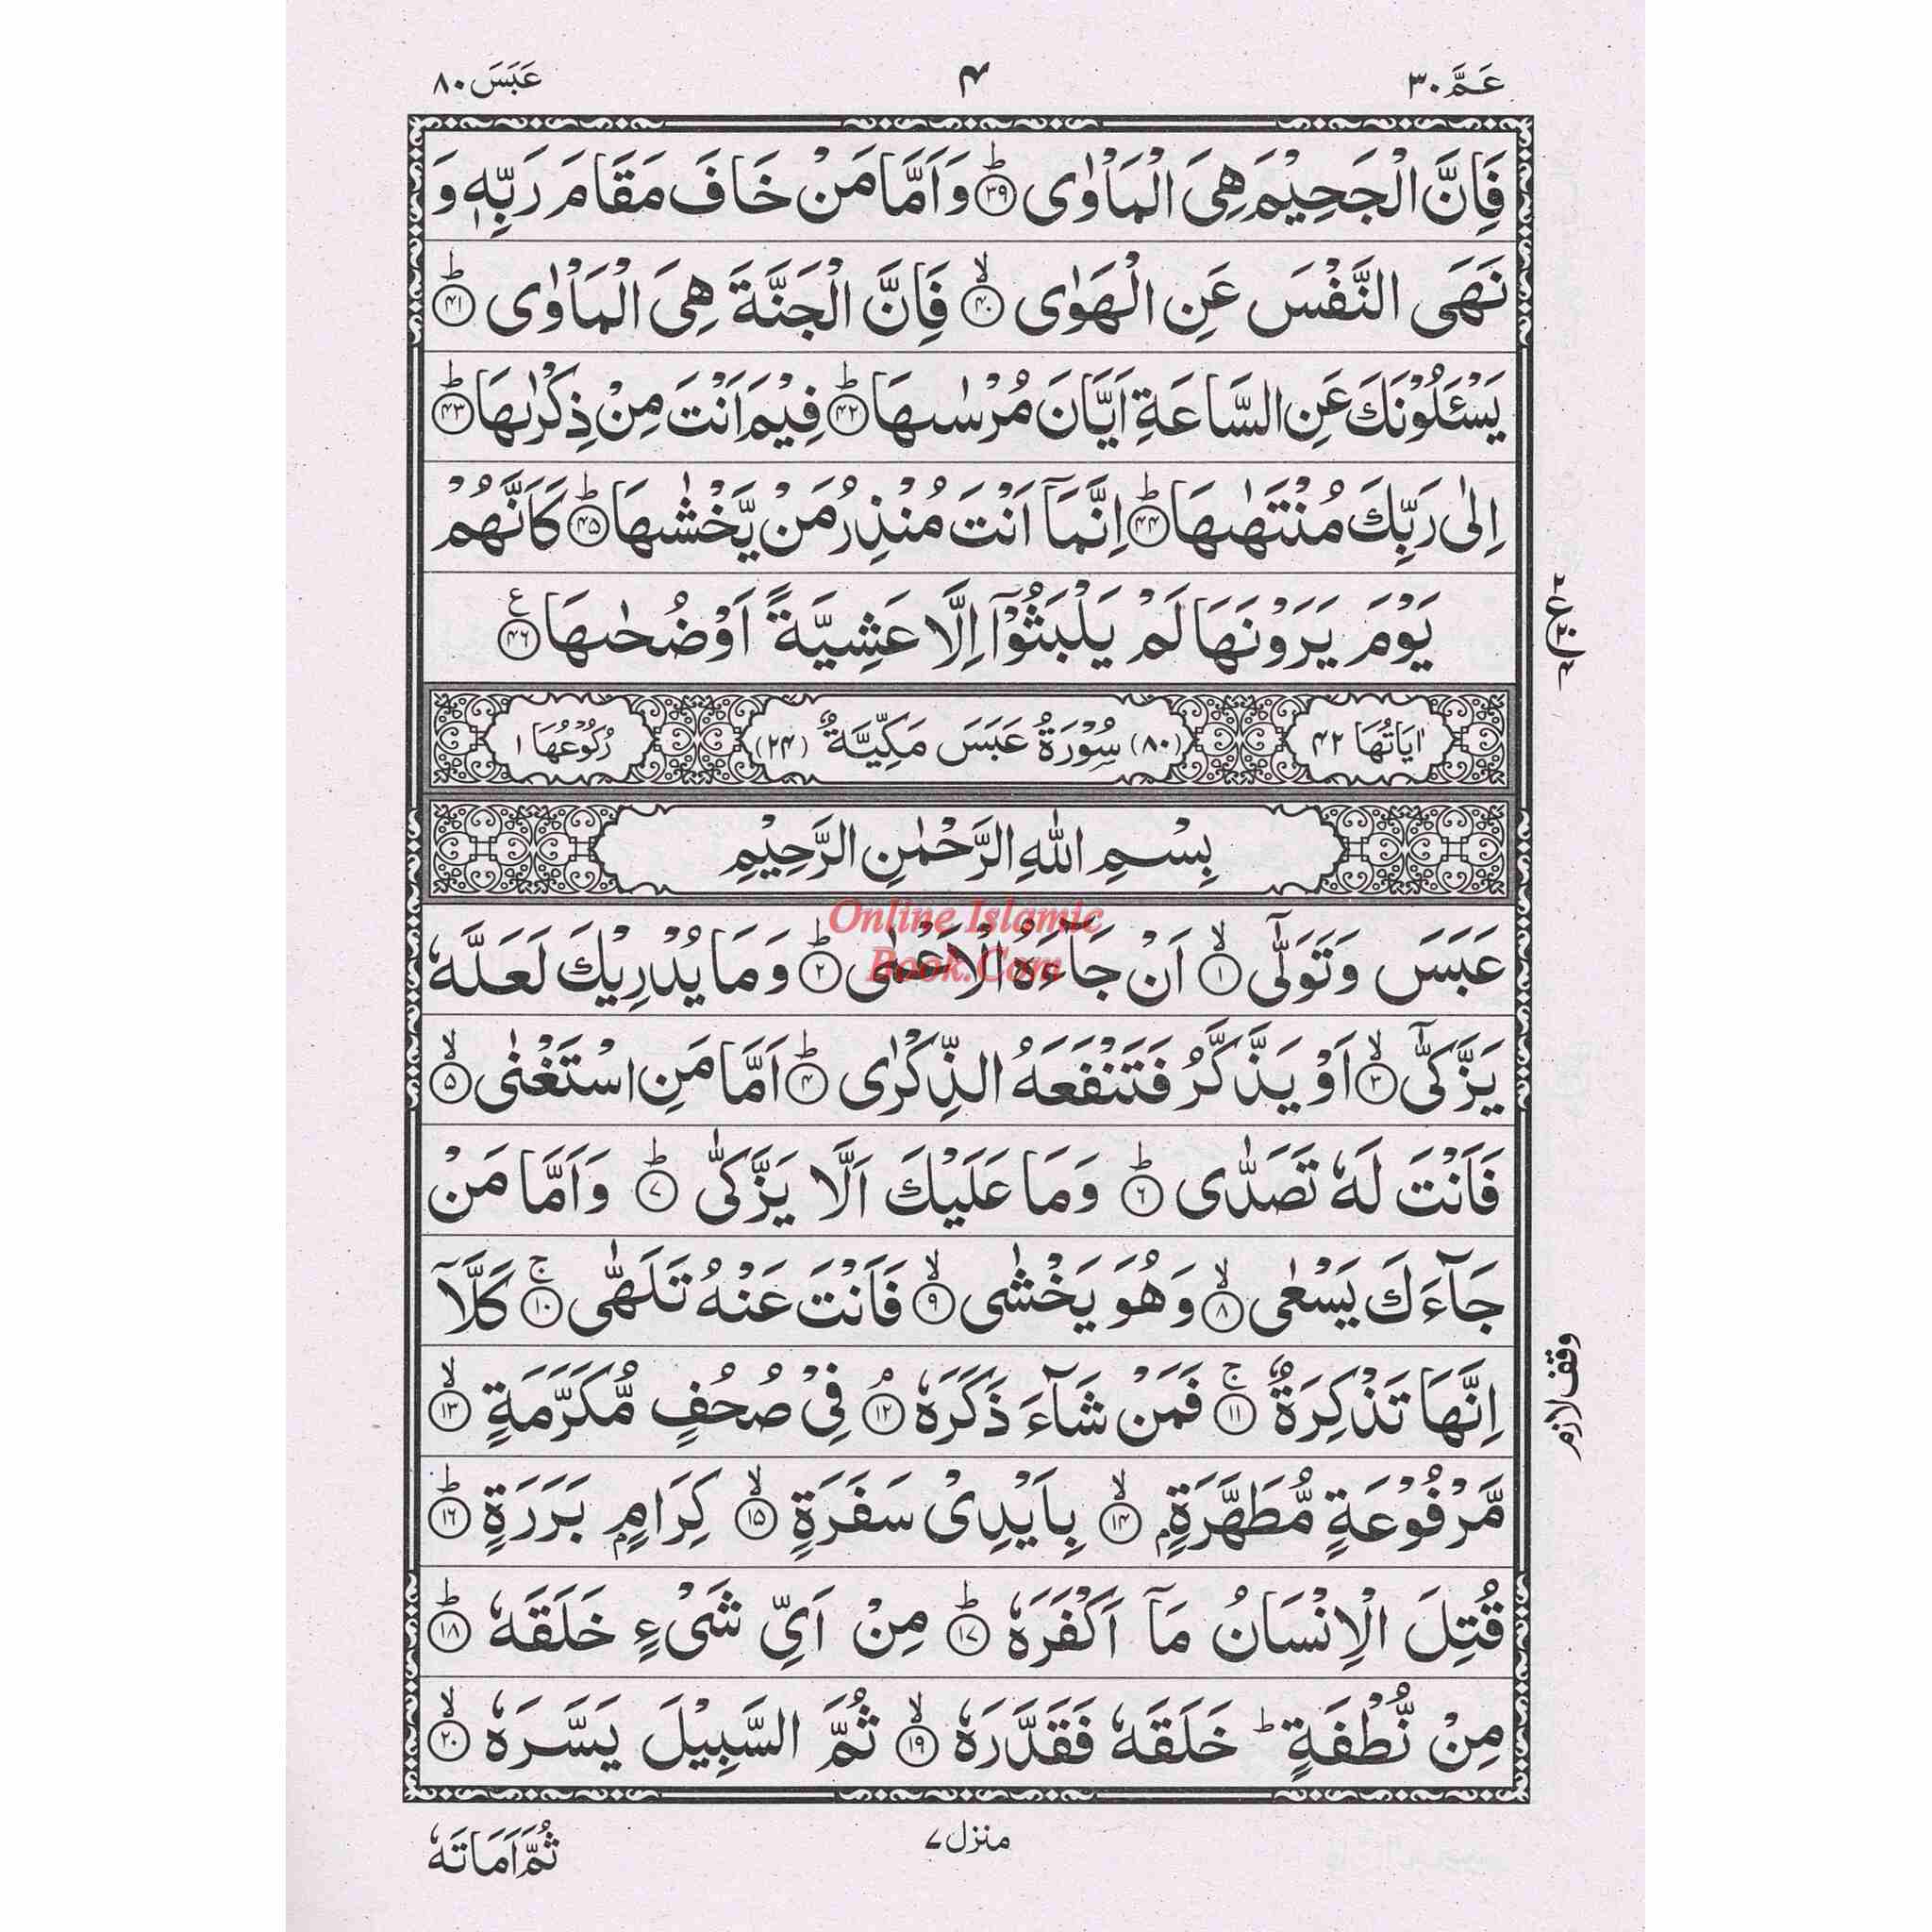 عَمَّ ٣٠
۴
عَبَسَ ٨٠
فَاِنَّ الْجَحِيْمَ هِيَ الْمَاْوٰى ؕ﴿۳۹﴾ وَاَمَّا مَنْ خَافَ مَقَامَ رَبِّهٖ وَ
نَهَى النَّفْسَ عَنِ الْهَوٰى ۙ﴿۴۰﴾ فَاِنَّ الْجَنَّةَ هِيَ الْمَاْوٰى ؕ﴿۴۱﴾
يَسْـَٔلُوْنَكَ عَنِ السَّاعَةِ اَيَّانَ مُرْسٰىهَا ؕ﴿۴۲﴾ فِيْمَ اَنْتَ مِنْ ذِكْرٰىهَا ؕ﴿۴۳﴾
اِلٰى رَبِّكَ مُنْتَهٰىهَا ؕ﴿۴۴﴾ اِنَّمَاۤ اَنْتَ مُنْذِرُ مَنْ يَّخْشٰىهَا ؕ﴿۴۵﴾ كَاَنَّهُمْ
يَوْمَ يَرَوْنَهَا لَمْ يَلْبَثُوْۤا اِلَّا عَشِيَّةً اَوْ ضُحٰىهَا ﴿۴۶﴾ ع
اٰيَاتُهَا ۴۲
(۸۰) سُوْرَةُ عَبَسَ مَكِّيَّةٌ (۲۴)
رُكُوْعُهَا ۱
بِسْمِ اللّٰهِ الرَّحْمٰنِ الرَّحِيْمِ
Online Islamic
Book.Com
عَبَسَ وَتَوَلّٰٓى ۙ﴿۱﴾ اَنْ جَآءَهُ الْاَعْمٰى ؕ﴿۲﴾ وَمَا يُدْرِيْكَ لَعَلَّهٗ
يَزَّكّٰٓى ۙ﴿۳﴾ اَوْ يَذَّكَّرُ فَتَنْفَعَهُ الذِّكْرٰى ؕ﴿۴﴾ اَمَّا مَنِ اسْتَغْنٰى ۙ﴿۵﴾
فَاَنْتَ لَهٗ تَصَدّٰى ؕ﴿۶﴾ وَمَا عَلَيْكَ اَلَّا يَزَّكّٰى ؕ﴿۷﴾ وَاَمَّا مَنْ
جَآءَكَ يَسْعٰى ۙ﴿۸﴾ وَهُوَ يَخْشٰى ۙ﴿۹﴾ فَاَنْتَ عَنْهُ تَلَهّٰى ۚ﴿۱۰﴾ كَلَّاۤ
اِنَّهَا تَذْكِرَةٌ ۚ﴿۱۱﴾ فَمَنْ شَآءَ ذَكَرَهٗ ۘ﴿۱۲﴾ فِيْ صُحُفٍ مُّكَرَّمَةٍ ۙ﴿۱۳﴾
مَّرْفُوْعَةٍ مُّطَهَّرَةٍۭ ۙ﴿۱۴﴾ بِاَيْدِيْ سَفَرَةٍ ۙ﴿۱۵﴾ كِرَامٍۭ بَرَرَةٍ ؕ﴿۱۶﴾
قُتِلَ الْاِنْسَانُ مَاۤ اَكْفَرَهٗ ؕ﴿۱۷﴾ مِنْ اَيِّ شَيْءٍ خَلَقَهٗ ؕ﴿۱۸﴾
مِنْ نُّطْفَةٍ ؕ خَلَقَهٗ فَقَدَّرَهٗ ۙ﴿۱۹﴾ ثُمَّ السَّبِيْلَ يَسَّرَهٗ ۙ﴿۲۰﴾
وقف لازم
منزل ۷
ثُمَّ اَمَاتَهٗ